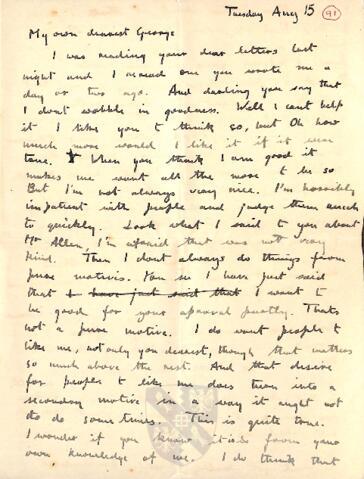 Tuesday Aug 15 (91)
My own dearest George
I was reading your dear letters last
night and I reread one you wrote me a
day or two ago. And darling you say that
I dont wobble in goodness. Well I cant help
it I like you to think so, but Oh how
much more would I like it if it were
true. When you think I am good it
makes me want all the more to be so
But I'm not always very nice. I'm horribly
impatient with people and judge them much
to quickly. Look what I said to you about
Mr Allen, I'm afraid that was not very
kind. Then I dont always do things from
pure motives. You see I have just said
that I have just said that I want to
be good for your aproval partly. Thats
not a pure motive. I do want people to
like me, not only you dearest, though that matters
so much above the rest. And that desire
for people to like me does turn into a
secondary motive in a way it aught not
to do some times. This is quite true.
I wonder if you know it from your
own knowledge of me. I do think that